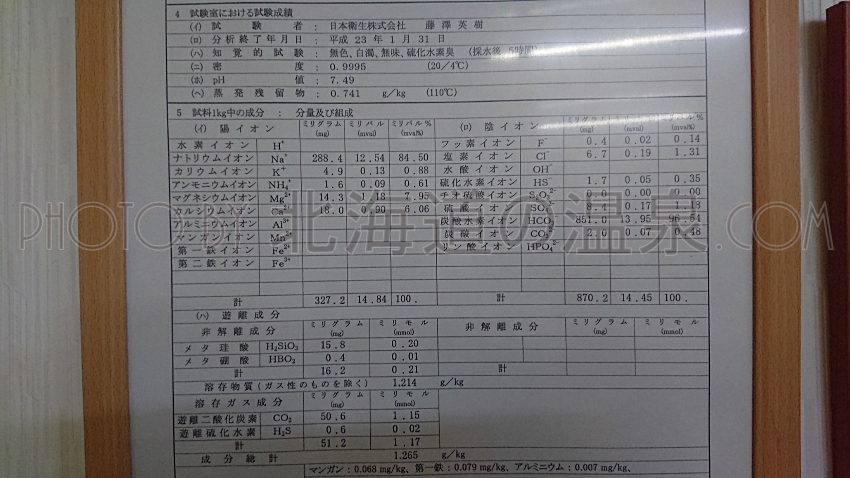 4 試験室における試験成績
(イ) 試験者 : 日本衛生株式会社 藤澤英樹
(ロ) 分析終了年月日 : 平成 23 年 1 月 31 日
(ハ) 知覚的試験 : 無色、白濁、無味、硫化水素臭 (採水後 5時間)
(ニ) 密度 : 0.9995 (20/4℃)
(ホ) pH 値 : 7.49
(ヘ) 蒸発残留物 : 0.741 g/kg (110℃)
5 試料1kg中の成分 : 分量及び組成
(イ) 陽イオン ミリグラム (mg) ミリバル (mval) ミリバル% (mval%) (ロ) 陰イオン ミリグラム (mg) ミリバル (mval) ミリバル% (mval%)
水素イオン H⁺ フッ素イオン F⁻ 0.4 0.02 0.14
ナトリウムイオン Na⁺ 288.4 12.54 84.50 塩素イオン Cl⁻ 6.7 0.19 1.31
カリウムイオン K⁺ 4.9 0.13 0.88 水酸イオン OH⁻
アンモニウムイオン NH₄⁺ 1.6 0.09 0.61 硫化水素イオン HS⁻ 1.7 0.05 0.35
マグネシウムイオン Mg²⁺ 14.3 1.18 7.95 チオ硫酸イオン S₂O₃²⁻ 0.0 0.00 0.00
カルシウムイオン Ca²⁺ 18.0 0.90 6.06 硫酸イオン SO₄²⁻ 0.17 1.18
アルミニウムイオン Al³⁺ 炭酸水素イオン HCO₃⁻ 851.0 13.95 96.54
マンガンイオン Mn²⁺ 炭酸イオン CO₃²⁻ 2.0 0.07 0.48
第一鉄イオン Fe²⁺ リン酸イオン HPO₄²⁻
第二鉄イオン Fe³⁺
計 327.2 14.84 100. 計 870.2 14.45 100.
(ハ) 遊離成分
非解離成分 ミリグラム (mg) ミリモル (mmol) 非解離成分 ミリグラム (mg) ミリモル (mmol)
メタ珪酸 H₂SiO₃ 15.8 0.20
メタ硼酸 HBO₂ 0.4 0.01
計 16.2 0.21 計
溶存物質(ガス性のものを除く) 1.214 g/kg
溶存ガス成分 ミリグラム (mg) ミリモル (mmol)
遊離二酸化炭素 CO₂ 50.6 1.15
遊離硫化水素 H₂S 0.6 0.02
計 51.2 1.17
成分総計 1.265 g/kg
マンガン : 0.068 mg/kg、第一鉄 : 0.079 mg/kg、アルミニウム : 0.007 mg/kg、
北海道の温泉.COM